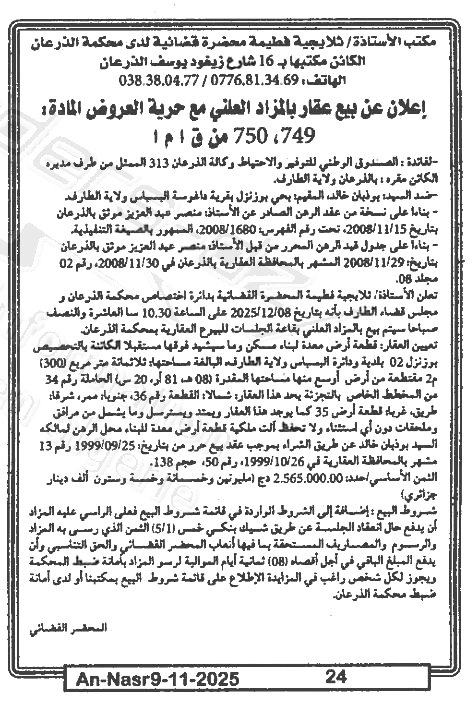 مكتب الأستاذة/ ثلايجية فطيمة محضرة قضائية لدى محكمة الذرعان
الكائن مكتبها بـ 16 شارع زيغود يوسف الذرعان
الهاتف: 0776.81.34.69 / 038.38.04.77
إعلان عن بيع عقار بالمزاد العلني مع حرية العروض المادة:
749، 750 من ق ا م ا
-لفائدة: الصندوق الوطني للتوفير والاحتياط وكالة الذرعان 313 الممثل من طرف مديره
الكائن مقره: بالذرعان ولاية الطارف.
-ضد السيد: بوذيان خالد، المقيم: بحي بوزنزل بقرية داغوسة البسباس ولاية الطارف.
- بناءا على نسخة من عقد الرهن الصادر عن الأستاذ: منصر عبد العزيز موثق بالذرعان
بتاريخ 2008/11/15، تحت رقم الفهرس: 2008/1680، الممهور بالصيغة التنفيذية.
-بناءا على جدول قيد الرهن المحرر من قبل الأستاذ: منصر عبد العزيز موثق بالذرعان
بتاريخ: 2008/11/29 المشهر بالمحافظة العقارية بالذرعان في 2008/11/30، رقم 02
مجلد 08.
تعلن الأستاذة/ ثلايجية فطيمة المحضرة القضائية بدائرة اختصاص محكمة الذرعان و
مجلس قضاء الطارف بأنه بتاريخ 2025/12/08 على الساعة 10.30 سا العاشرة والنصف
صباحا سيتم بيع بالمزاد العلني بقاعة الجلسات للبيوع العقارية بمحكمة الذرعان.
تعيين العقار: قطعة أرض معدة لبناء مسكن وما سيشيد فوقها مستقبلا الكائنة بالتحصيص
بوزنزل 02 بلدية ودائرة البسباس ولاية الطارف، البالغة مساحتها: ثلاثمائة متر مربع (300)
م2 مقتطعة من أرض أوسع منها مساحتها المقدرة (08 هـ، 81 أر، 20 س) الحاملة رقم 34
من المخطط الخاص بالتجزئة يحد هذا العقار: شمالا: القطعة رقم 36، جنوبا: ممر، شرقا:
طريق، غربا: قطعة أرض 35 كما يوجد هذا العقار ويمتد ويسترسل وما يشمل من مرافق
وملحقات دون أي استثناء ولا تحفظ آلت ملكية قطعة أرض معدة للبناء محل الرهن لمالكه
السيد بوذيان خالد عن طريق الشراء بموجب عقد بيع حرر من بتاريخ: 1999/09/25 رقم 13
مشهر بالمحافظة العقارية في 1999/10/26، رقم 50، حجم 138.
الثمن الأساسي/حدد: 2.565.000.00 دج (مليونين وخمسمائة وخمسة وستون ألف دينار
جزائري)
شروط البيع: إضافة إلى الشروط الواردة في قائمة شروط البيع فعلى الراسي عليه المزاد
أن يدفع حال انعقاد الجلسة عن طريق شيك بنكي خمس (5/1) الثمن الذي رسى به المزاد
والرسوم والمصاريف المستحقة بما فيها أتعاب المحضر القضائي والحق التناسبي وأن
يدفع المبلغ الباقي في أجل أقصاه (08) ثمانية أيام الموالية لرسو المزاد بأمانة ضبط المحكمة
ويجوز لكل شخص راغب في المزايدة الإطلاع على قائمة شروط البيع بمكتبنا أو لدى أمانة
ضبط محكمة الذرعان.
المحضر القضائي
An-Nasr9-11-2025
24